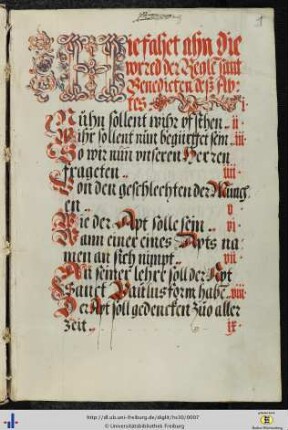 Hie fahet ahn die
vorred der Regle sant
Benedicten deß Ab
tes i
Nuhn sollent wihr vfsthen ii
Wihr sollent nün begürttet sein iii
So wir nün vnseren Herren
frageten iiii
Von den geschlechten der Münch
en v
Wie der Apt solle sein vi
Wann einer eines Apts na
men an sich nimpt vii
An seiner lehre soll der Apt
Sanct Paulus form habe viii
Der Apt soll gedencken züo aller
zeit ix
http://dl.ub.uni-freiburg.de/diglit/hs30/0007
© Universitätsbibliothek Freiburg